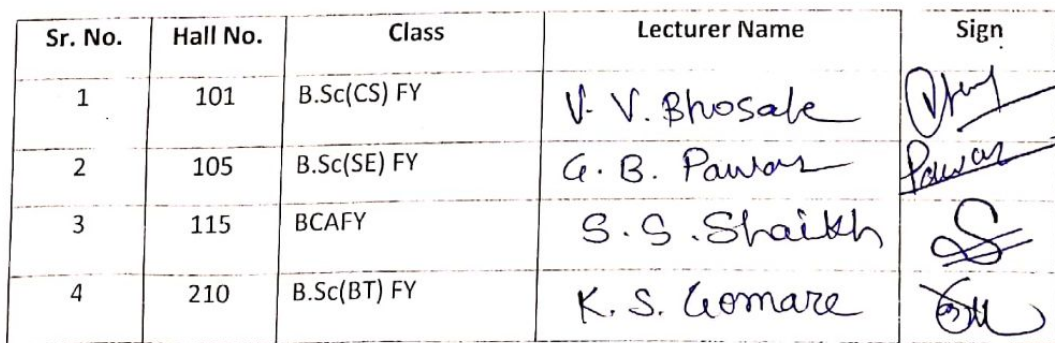 Sr. No. Hall No. Class Lecturer Name Sign
1 101 B.Sc(CS) FY V. V. Bhosale
2 105 B.Sc(SE) FY G. B. Pawar Pawar
3 115 BCAFY S. S. Shaikh
4 210 B.Sc(BT) FY K. S. Gomare